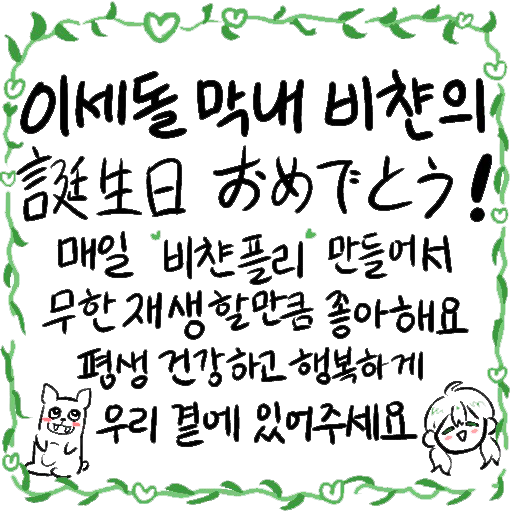 이세돌 막내 비챤의
誕生日 おめでとう!
매일 "비챤플리" 만들어서
무한 재생할만큼 좋아해요
평생 건강하고 행복하게
우리 곁에 있어주세요